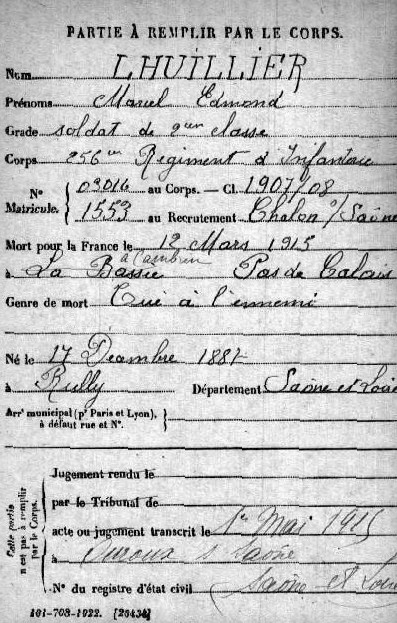 PARTIE À REMPLIR PAR LE CORPS.
Nom LHUILLIER
Prénoms Marcel Edmond
Grade soldat de 2me classe
Corps 256me Régiment d'Infanterie
No 03014 au Corps. — Cl. 1907/08
Matricule. 1553 au Recrutement Chalon s/Saône
Mort pour la France le 12 Mars 1915
à Cambrin
à La Bassée Pas de Calais
Genre de mort Tué à l'ennemi
Né le 17 Décembre 1887
à Rully Département Saône et Loire
Arrt municipal (pr Paris et Lyon),
à défaut rue et No.
Cette partie
n'est pas à remplir
par le Corps.
Jugement rendu le
par le Tribunal de
acte ou jugement transcrit le 1er Mai 1915
à Ouroux s Saône
No du registre d'état civil Saône et Loire
101-708-1922. [26434]